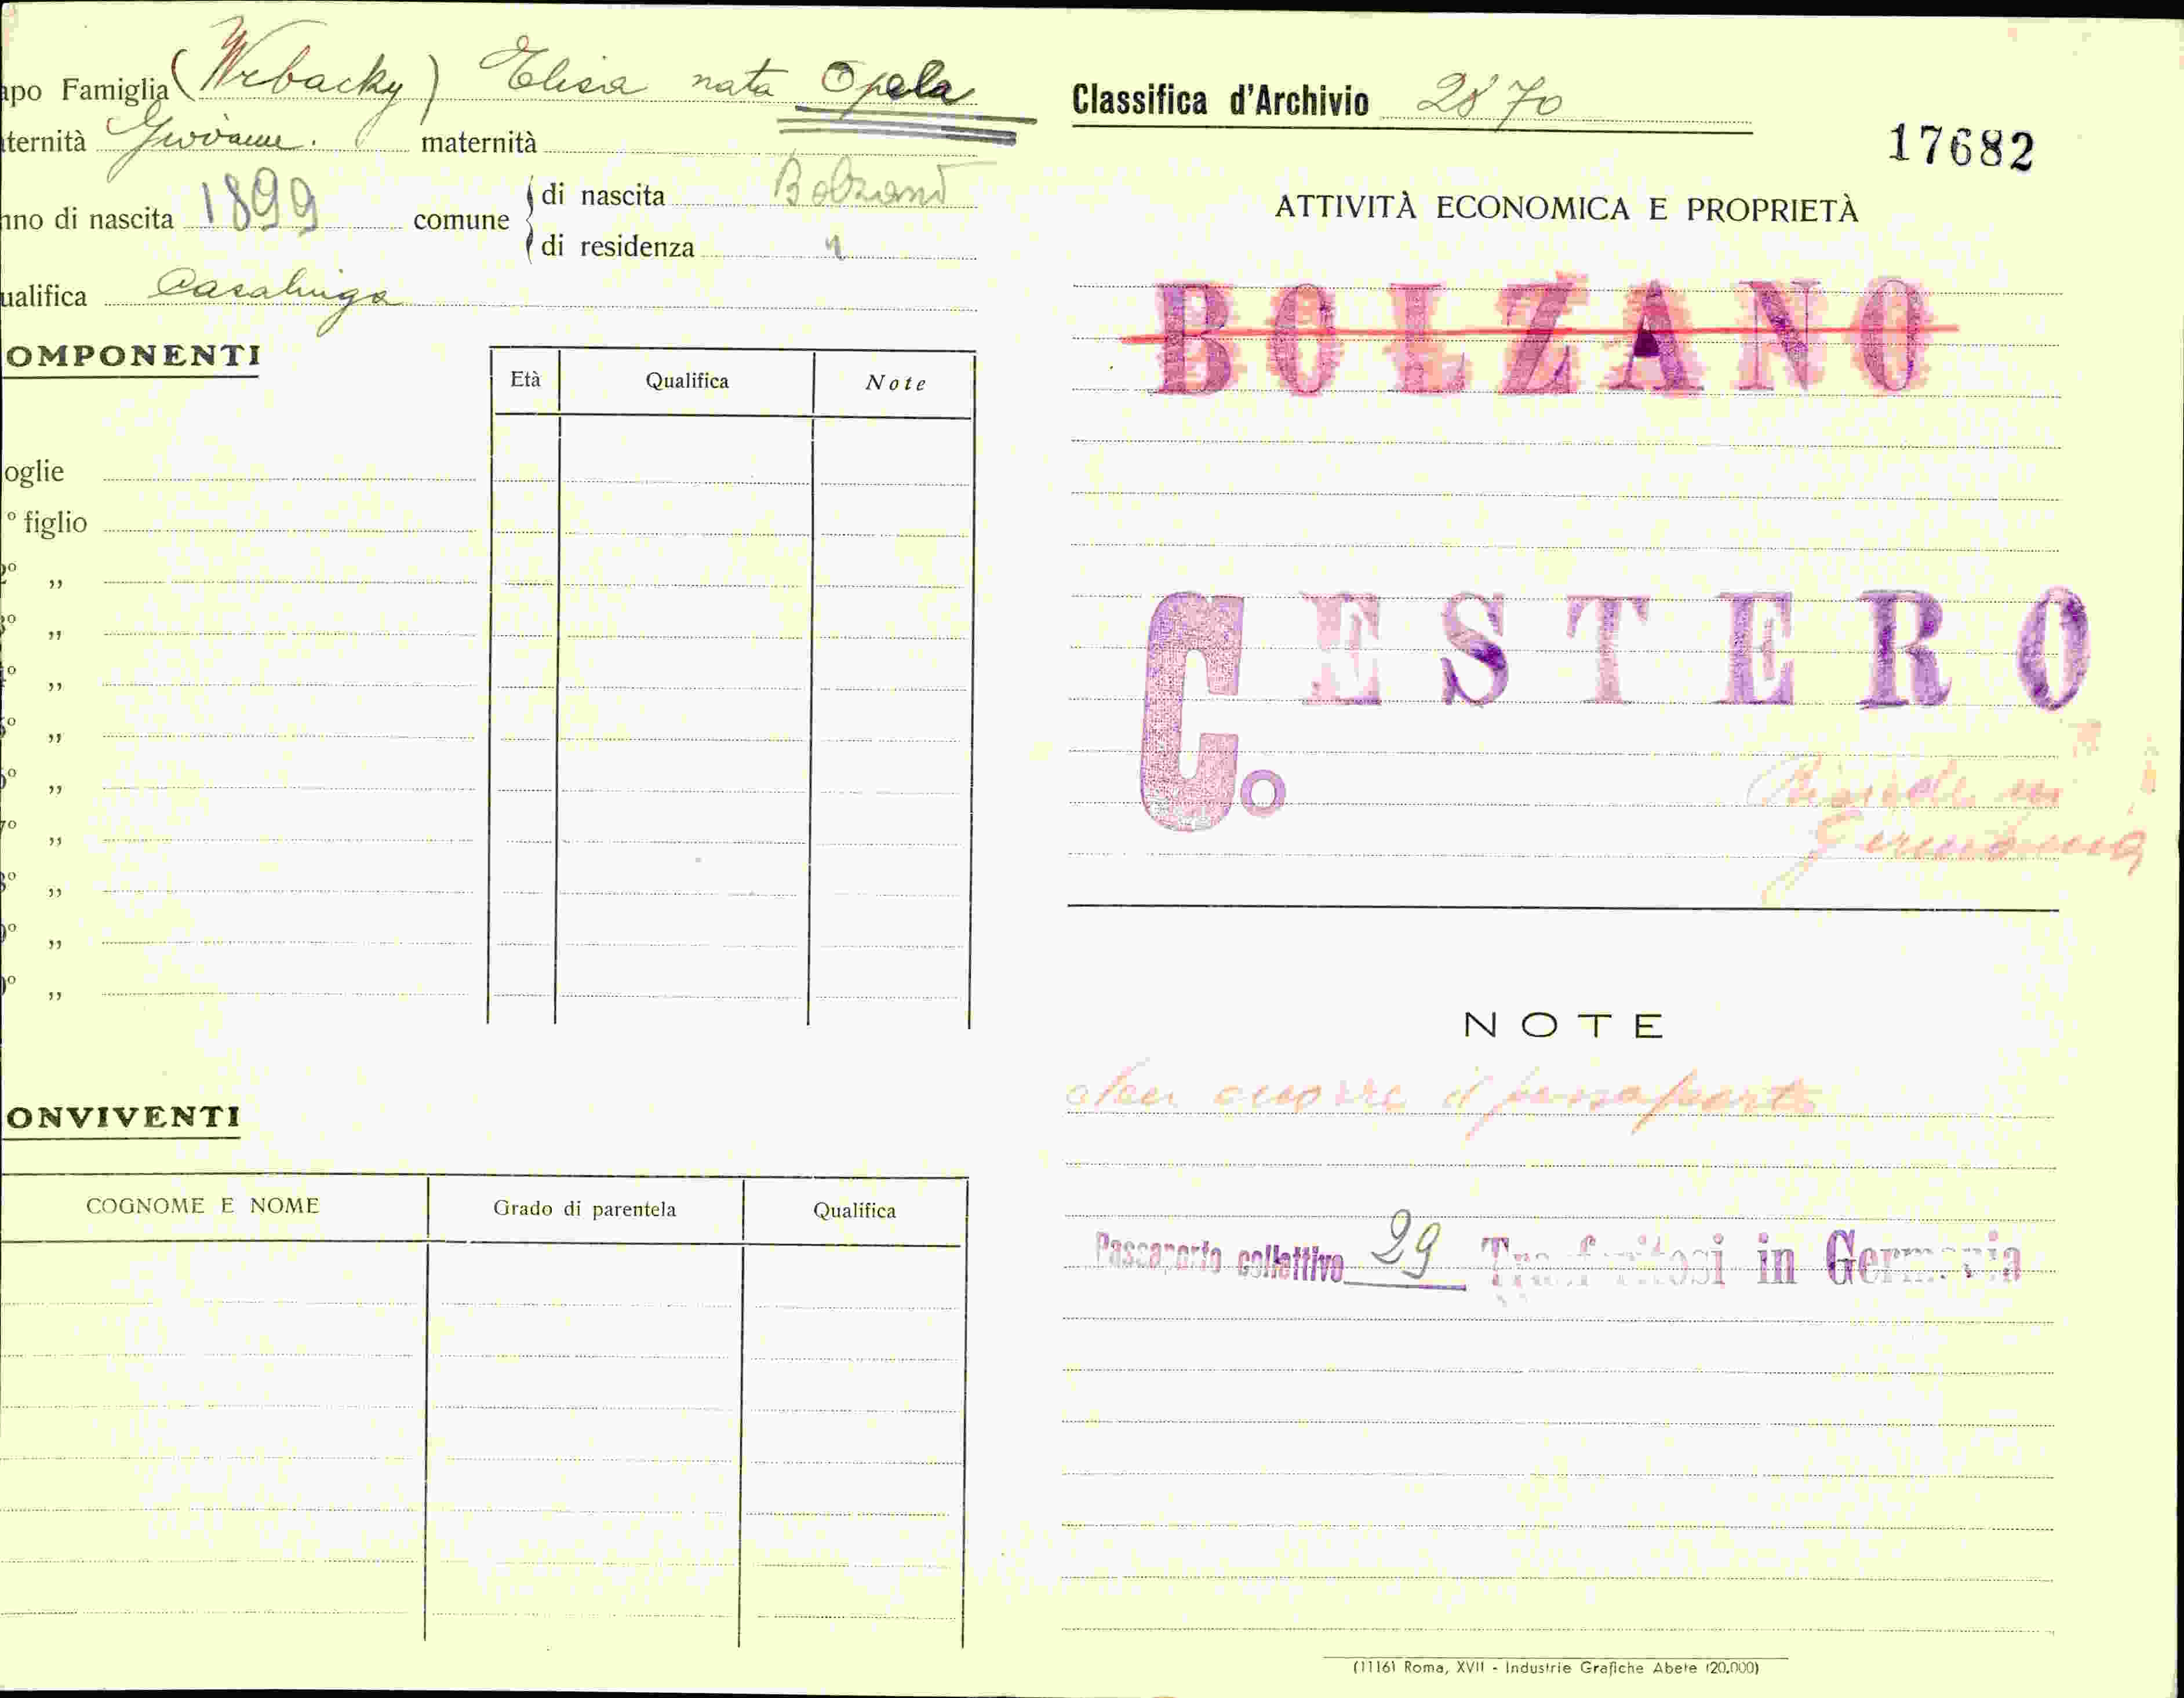 apo Famiglia (Wrbacky) Elisa nata Opela
ternità Giovanni. maternità
nno di nascita 1899 comune di nascita Bolzano
di residenza "
ualifica Casalinga
OMPONENTI
Età Qualifica Note
oglie
° figlio
2° ,,
3° ,,
° ,,
5° ,,
6° ,,
7° ,,
8° ,,
9° ,,
0° ,,
ONVIVENTI
COGNOME E NOME Grado di parentela Qualifica
Classifica d'Archivio 2870
17682
ATTIVITÀ ECONOMICA E PROPRIETÀ
BOLZANO
ESTERO
Co
Risiede in
Germania
NOTE
occorre il passaporto
Passaporto collettivo 29 Trasferitosi in Germania
(1116) Roma, XVII - Industrie Grafiche Abete (20.000)